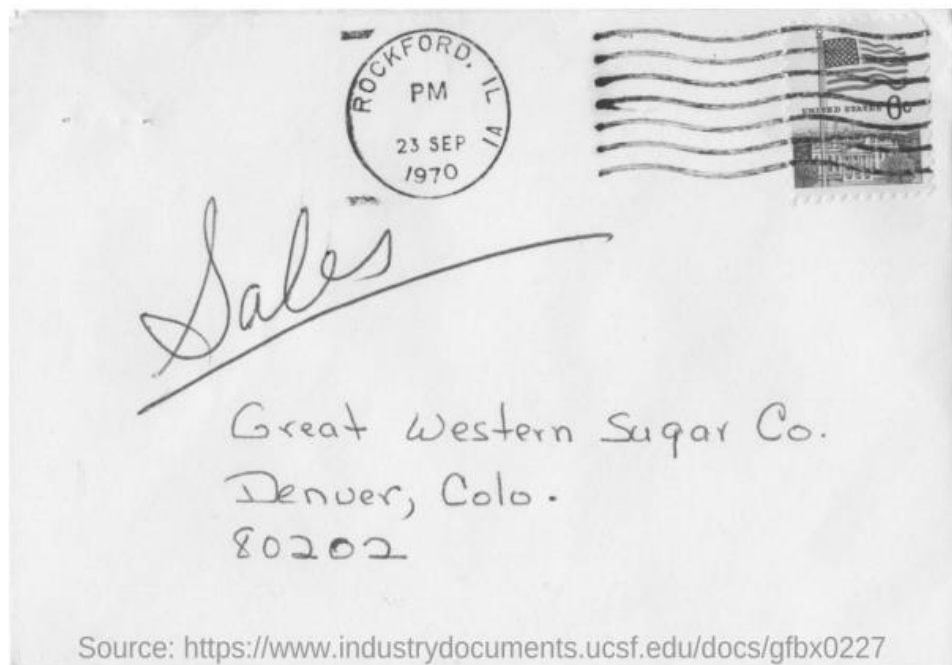 ROCKFORD, IL
1A
PM
23 SEP
1970
UNITED STATES 6c
Sales
Great Western Sugar Co.
Denver, Colo.
80202
Source: https://www.industrydocuments.ucsf.edu/docs/gfbx0227